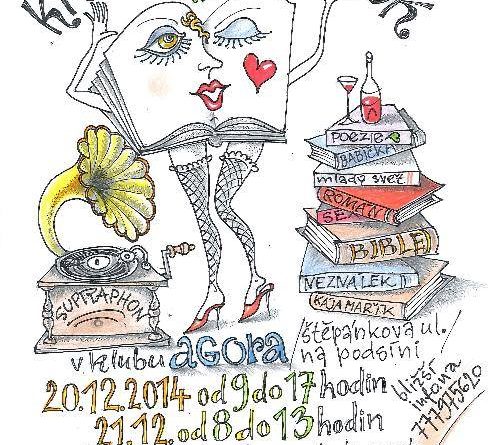 POEZIE
BABIČKA
mladý svět
ROMÁN
SEX
BIBLE
NEZNALEK
KÁJA MAŘÍK
SUPRAPHON
v klubu AGORA
štěpánkova ul.
na podsíni
20.12.2014 od 9 do 17 hodin
21.12. od 8 do 13 hodin
bližší
info na
777975620